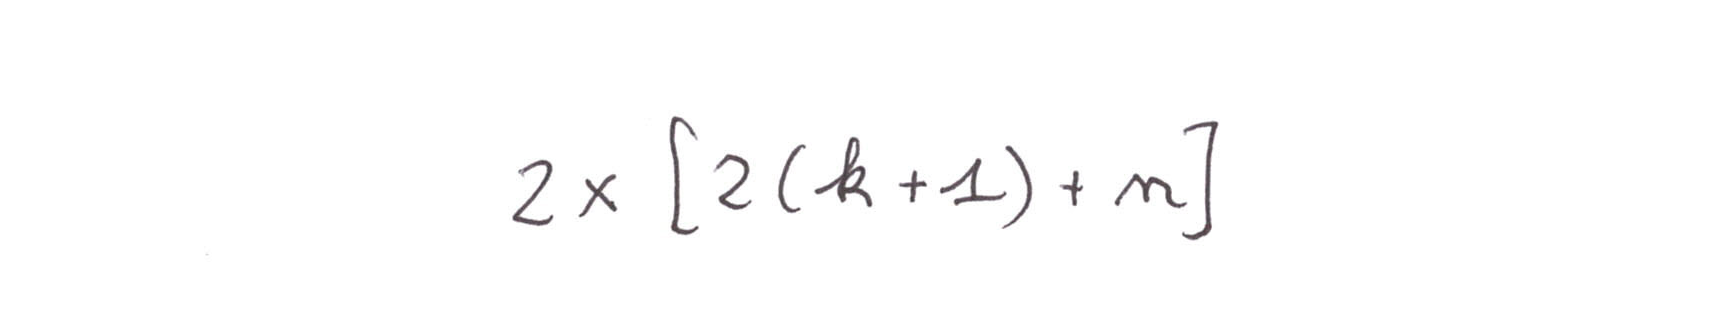 2 × [2(k+1)+n]